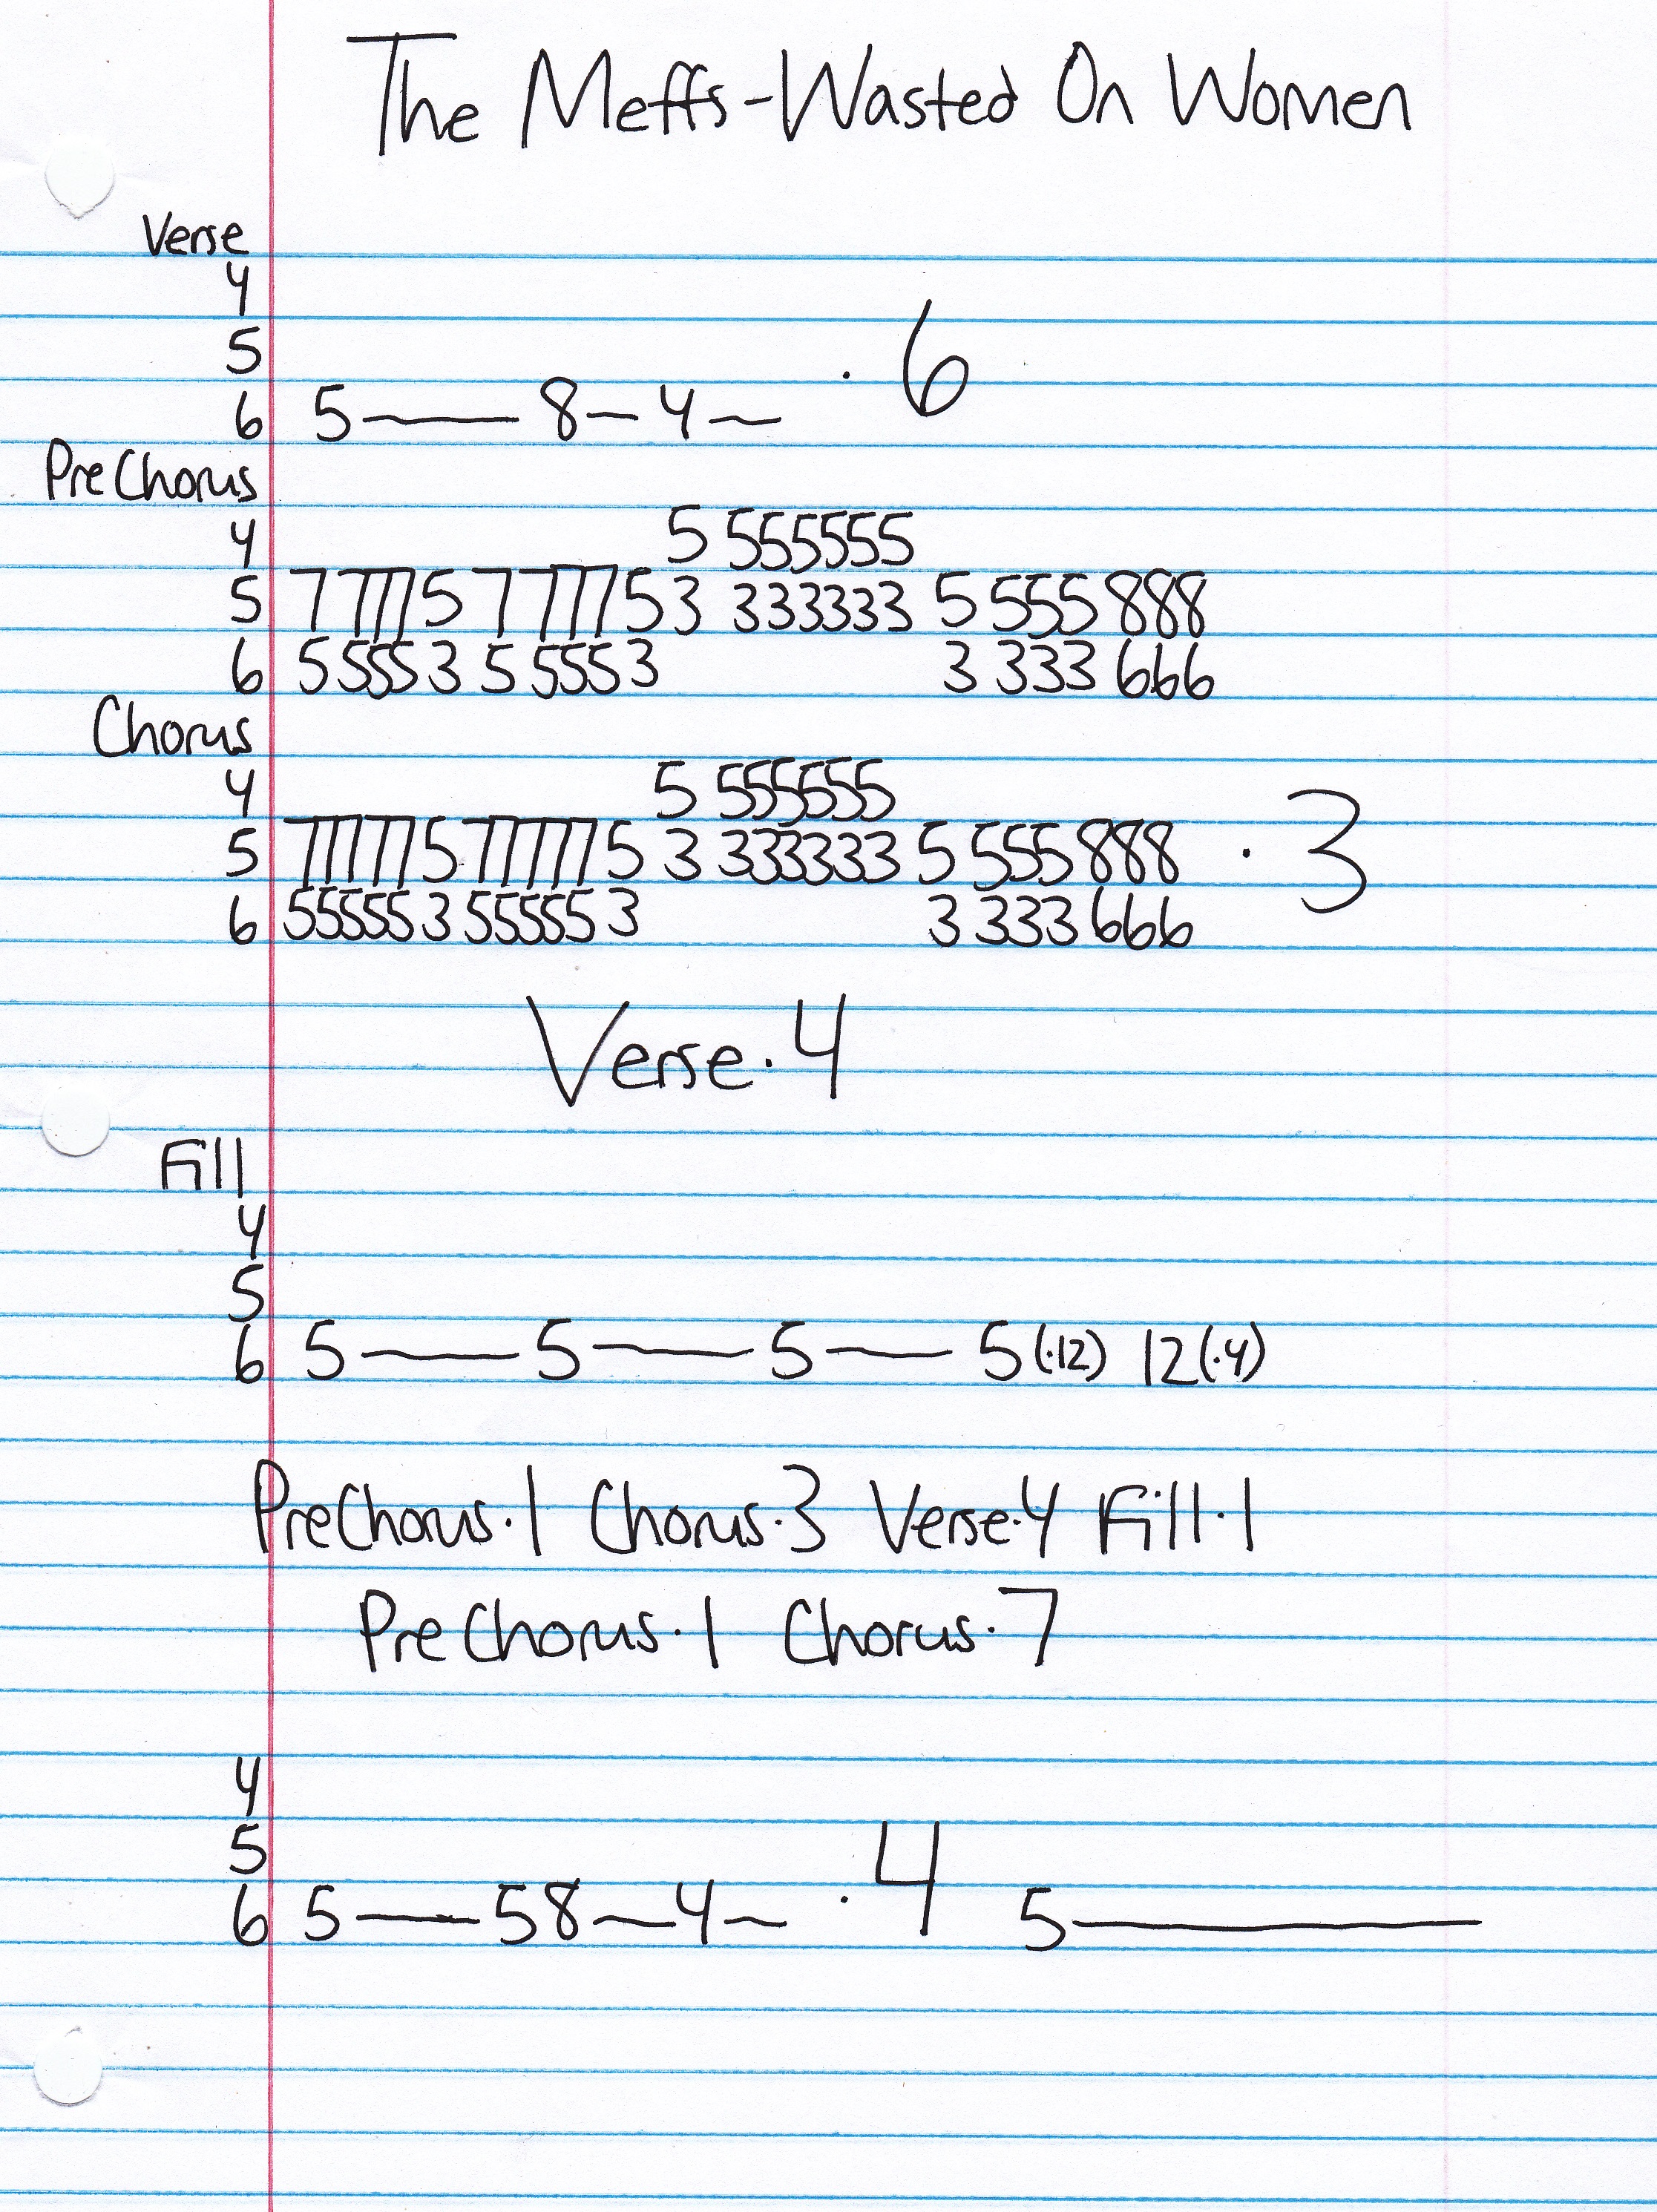 The Meffs-Wasted On Women
Verse
4
5
6 5——8—4— ·6
PreChorus
4 5 555555
5 7 777 5 7 777 5 3 333333 5 555 888
6 5 555 3 5 555 3 3 333 666
Chorus
4 5 555555
5 77777 5 77777 5 3 333333 5 555 888 ·3
6 55555 3 55555 3 3 333 666
Verse·4
Fill
4
5
6 5——5——5—— 5(·12) 12(·4)
PreChorus·1 Chorus·3 Verse·4 Fill·1
PreChorus·1 Chorus·7
4
5
6 5——58—4— ·4 5————